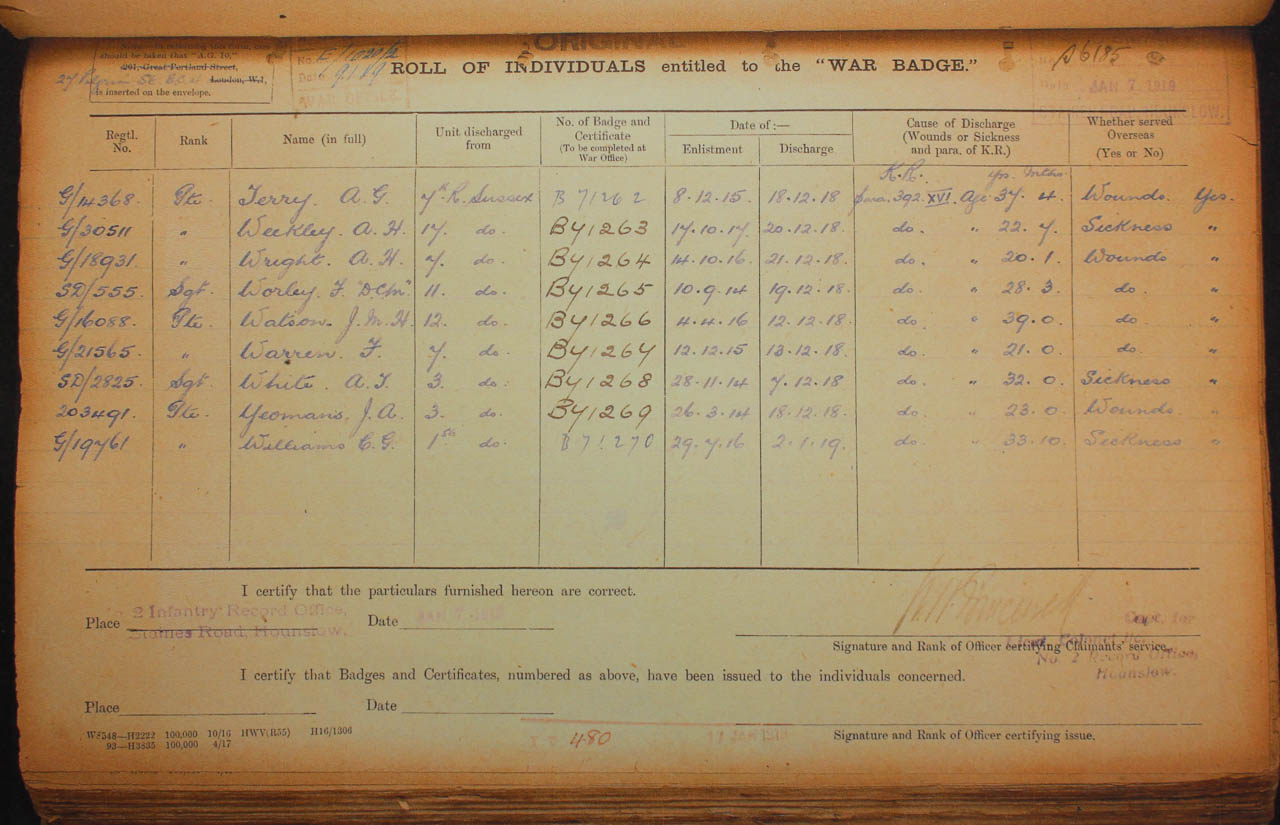 should be taken that "A.G. 10,"
261, Great Portland Street,
London, W.1,
is inserted on the envelope.
ORIGINAL
No. E/1020/2
Date 9.1.19
ROLL OF INDIVIDUALS entitled to the "WAR BADGE."
A6185
JAN 7 1919
Regtl. No. Rank Name (in full) Unit discharged from No. of Badge and Certificate (To be completed at War Office) Date of:— Enlistment Discharge Cause of Discharge (Wounds or Sickness and para. of K.R.) Whether served Overseas (Yes or No)
K.R. yrs. mths.
G/14368. Pte. Terry. A. G. 7th R. Sussex B 71262 8.12.15. 18.12.18 para. 392 XVI. Age 37. 4. Wounds. Yes.
G/30511 " Weekley. A. H. 17. do. B71263 17.10.17. 20.12.18. do. " 22. 7. Sickness "
G/18931. " Wright. A. H. 7. do. B71264 14.10.16. 21.12.18. do. " 20. 1. Wounds "
SD/555. Sgt. Worley. F. "D.C.M" 11. do. B71265 10.9.14 19.12.18 do. " 28. 3. do. "
G/16088. Pte. Watson. J. M. H. 12. do. B71266 4.4.16 12.12.18. do. " 39. 0. do. "
G/21565. " Warren. F. 7. do. B71267 12.12.15 13.12.18. do. " 21. 0. do. "
SD/2825. Sgt. White. A. T. 3. do. B71268 28.11.14 7.12.18 do. " 32. 0. Sickness "
203491. Pte. Yeomans. J. A. 3. do. B71269 26.3.14 18.12.18. do. " 23. 0. Wounds. "
G/19761 " Williams E. G. 1st do. B 71270 29.7.16 2.1.19. do. " 33. 10. Sickness "
I certify that the particulars furnished hereon are correct.
Place 2 Infantry Record Office, Date JAN 7 1919
Staines Road, Hounslow.
Capt. for
Lieut. Colonel
Signature and Rank of Officer certifying Claimants' service.
No. 2 Record Office,
Hounslow.
I certify that Badges and Certificates, numbered as above, have been issued to the individuals concerned.
Place Date
W8548—H2222 100,000 10/16 HWV(R55) H16/1306
93—H3835 100,000 4/17
480
11 JAN 1919
Signature and Rank of Officer certifying issue.